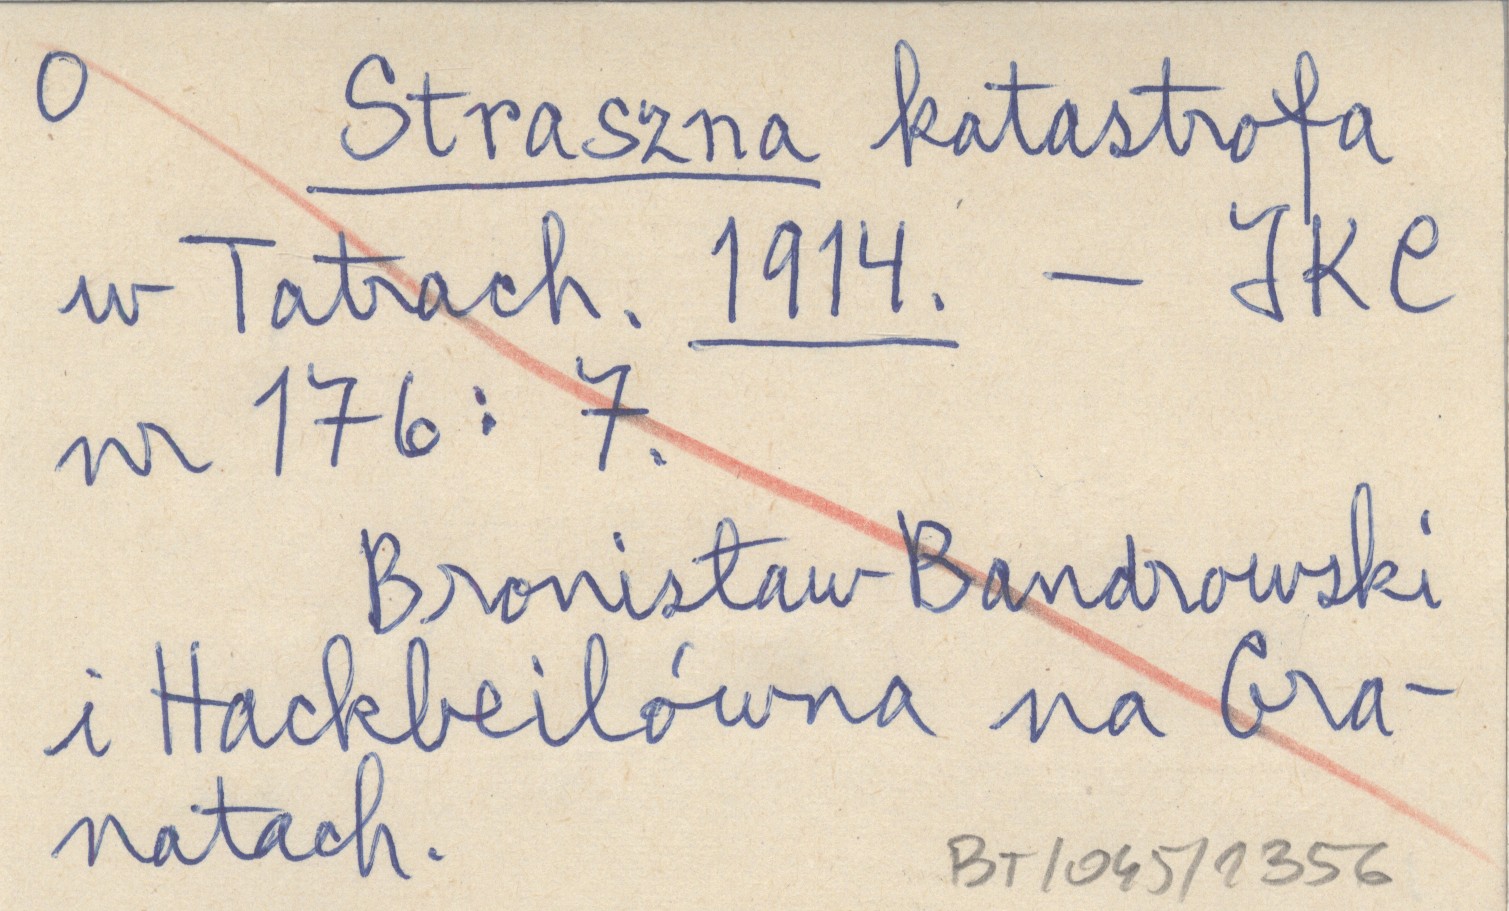 O Straszna katastrofa
w Tatrach. 1914. — JKC
nr 176: 7.
Bronisław Bandrowski
i Hackbeilówna na Gra-
natach.
BT/045/2356